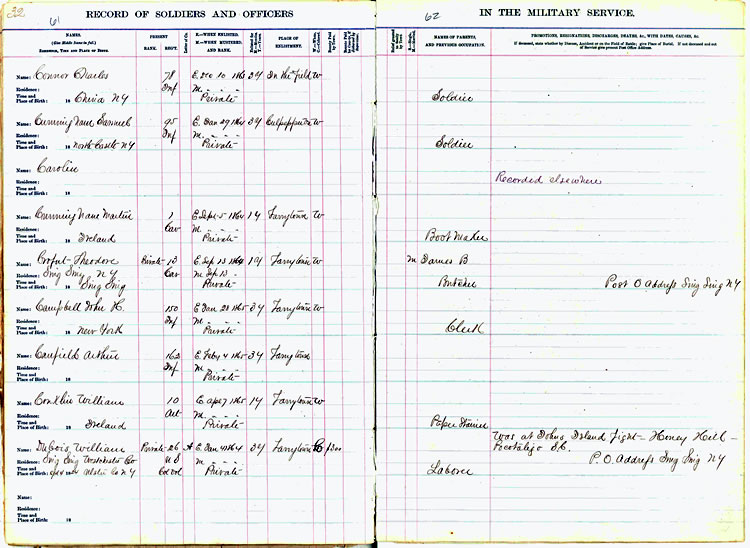 32
61
RECORD OF SOLDIERS AND OFFICERS
62
IN THE MILITARY SERVICE.
NAMES.
(Give Middle Name in full.)
RESIDENCE, TIME AND PLACE OF BIRTH.
PRESENT
RANK.
REGT.
E.—WHEN ENLISTED.
M.—WHEN MUSTERED
AND RANK.
PLACE OF
ENLISTMENT.
NAMES OF PARENTS,
AND PREVIOUS OCCUPATION.
PROMOTIONS, RESIGNATIONS, DISCHARGES, DEATHS, &c., WITH DATES, CAUSES, &c.
If deceased, state whether by Disease, Accident or on the Field of Battle; give Place of Burial. If not deceased and out
of Service give present Post Office Address.
Name: Connor Charles 78 E Dec 10 186 3y In the field W
Residence: Inf M
Time and
Place of Birth: 18 China NY Private Soldier
Name: Cunningham Samuel 95 E Jan 29 1864 3y W
Residence: Inf M
Time and
Place of Birth: 18 North Castle NY Private Soldier
Name: Carolin
Residence: Recorded elsewhere
Time and
Place of Birth: 18
Name: Cunningham Martin 1 E Sept 5 1864 1y Tarrytown W
Residence: Cav M
Time and
Place of Birth: 18 Ireland Private Boot Maker
Name: Theodore Private 13 E Sep 13 1864 1y Tarrytown W M James B
Residence: Sing Sing NY Cav M Sep 13
Time and
Place of Birth: 18 Sing Sing Private Butcher Post O. Address Sing Sing NY
Name: Campbell John H. 150 E Jan 28 1865 3y Tarrytown W
Residence: Inf M
Time and
Place of Birth: 18 New York Private Clerk
Name: Canfield Arthur 162 E Feby 4 1865 3y Tarrytown
Residence: Inf M
Time and
Place of Birth: 18 Private
Name: Conklin William 10 E Apl 7 1865 1y Tarrytown W
Residence: Art M
Time and
Place of Birth: 18 Ireland Private Paper Stainer
Name: DuBois, William Private 26 A E Jan 4 1864 3y Tarrytown 300 Was at Johns Island fight — Honey Hill —
Residence: Sing Sing Westchester Co U S M Pocotaligo S.C. P. O. Address Sing Sing NY
Time and
Place of Birth: Ulster Co NY Col vol Private Laborer
Name:
Residence:
Time and
Place of Birth: 18